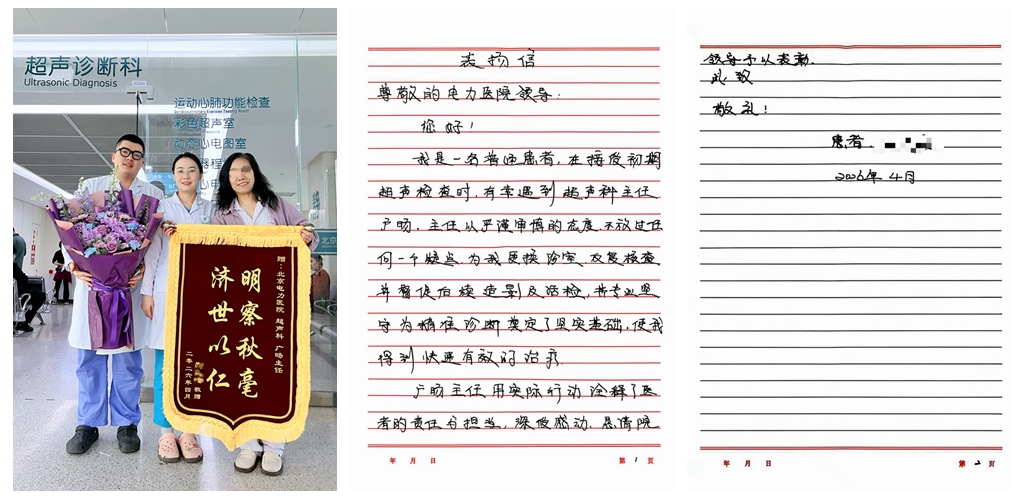 超声诊断科
Ultrasonic Diagnosis
运动心肺功能检查
彩色超声室
动态心电图室
赠：北京电力医院 超声科 广旸主任
明察秋毫
济世以仁
敬赠
二零二六年四月
表扬信
尊敬的电力医院领导：
您好！
我是一名普通患者，在接受初期
超声检查时，有幸遇到超声科主任
广旸，主任以严谨审慎的态度，不放过任
何一个疑点，为我更换诊室，反复核查
并督促后续造影及活检，其专业坚
守为精准诊断奠定了坚实基础，使我
得到快速有效的治疗。
广旸主任用实际行动诠释了医
者的责任与担当，深受感动，恳请院
年 月 日
第 1 页
领导予以表彰。
此致
敬礼！
患者
2026年4月
年 月 日
第 2 页